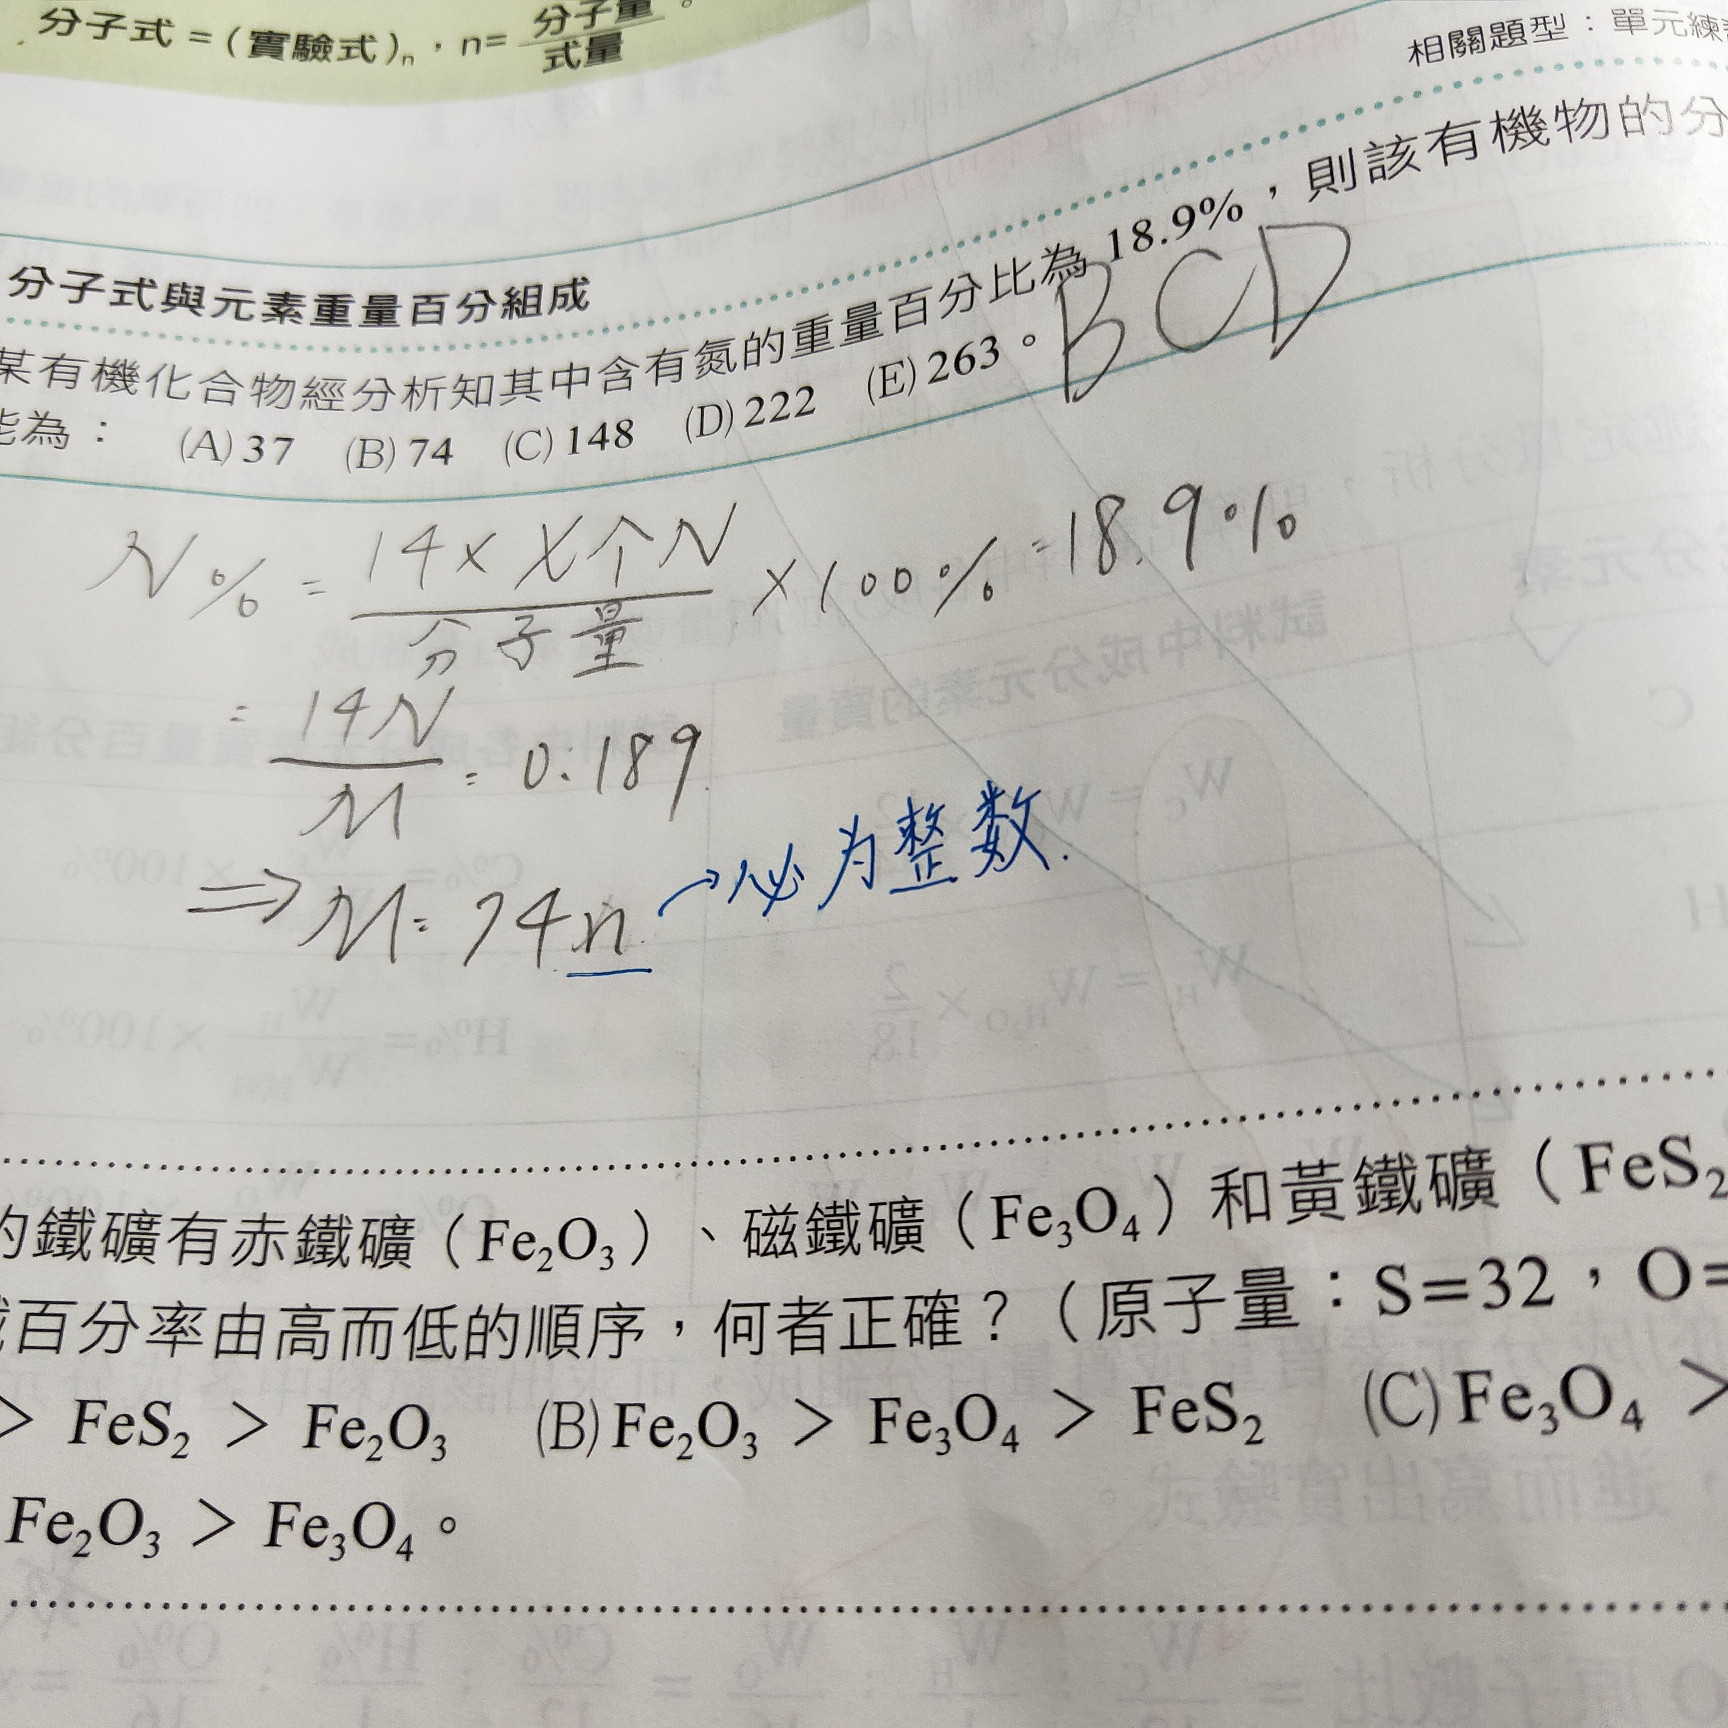 分子式 = (實驗式)n，n= 分子量/式量。
相關題型：單元練
分子式與元素重量百分組成
某有機化合物經分析知其中含有氮的重量百分比為 18.9%，則該有機物的分
能為： (A) 37 (B) 74 (C) 148 (D) 222 (E) 263。 BCD
N% = 14 x X个N/分子量 x 100% = 18.9%
= 14N/M = 0.189
⇒ M = 74n →必为整数.
的鐵礦有赤鐵礦（Fe2O3）、磁鐵礦（Fe3O4）和黃鐵礦（FeS2
百分率由高而低的順序，何者正確？（原子量：S=32，O=
> FeS2 > Fe2O3 (B) Fe2O3 > Fe3O4 > FeS2 (C) Fe3O4 >
Fe2O3 > Fe3O4。